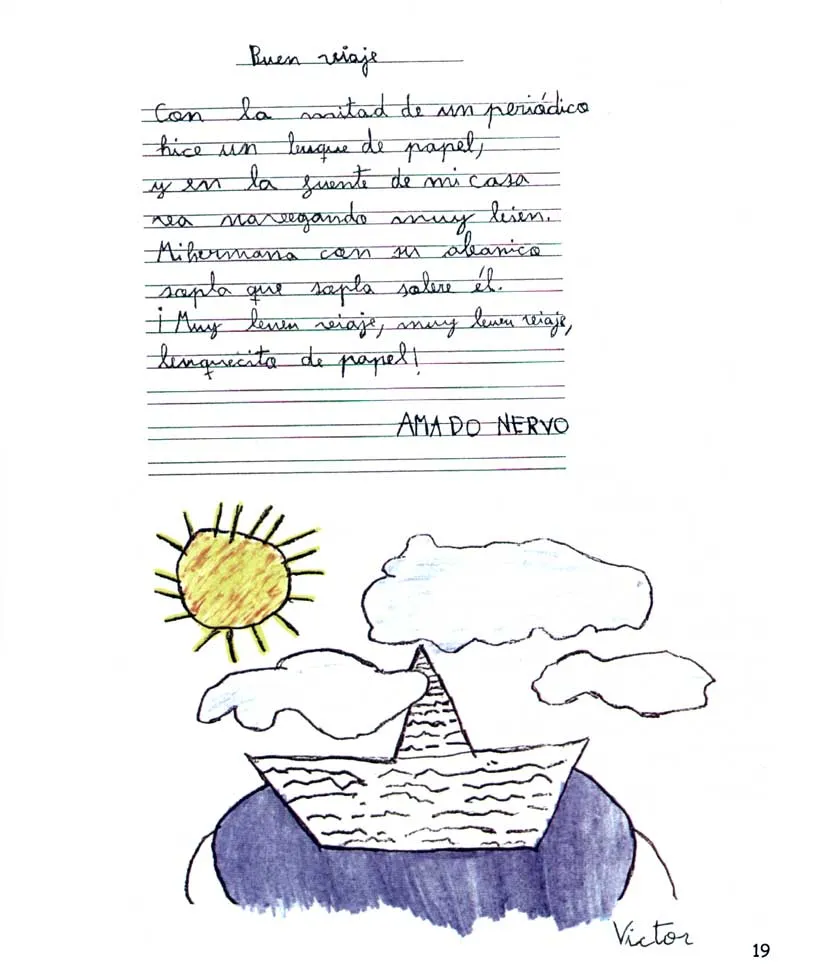 Buen viaje
Con la mitad de un periódico
hice un buque de papel,
y en la fuente de mi casa
va navegando muy bien.
Mi hermana con su abanico
sopla que sopla sobre él.
¡Muy buen viaje, muy buen viaje,
buquecito de papel!
AMADO NERVO
Victor
19